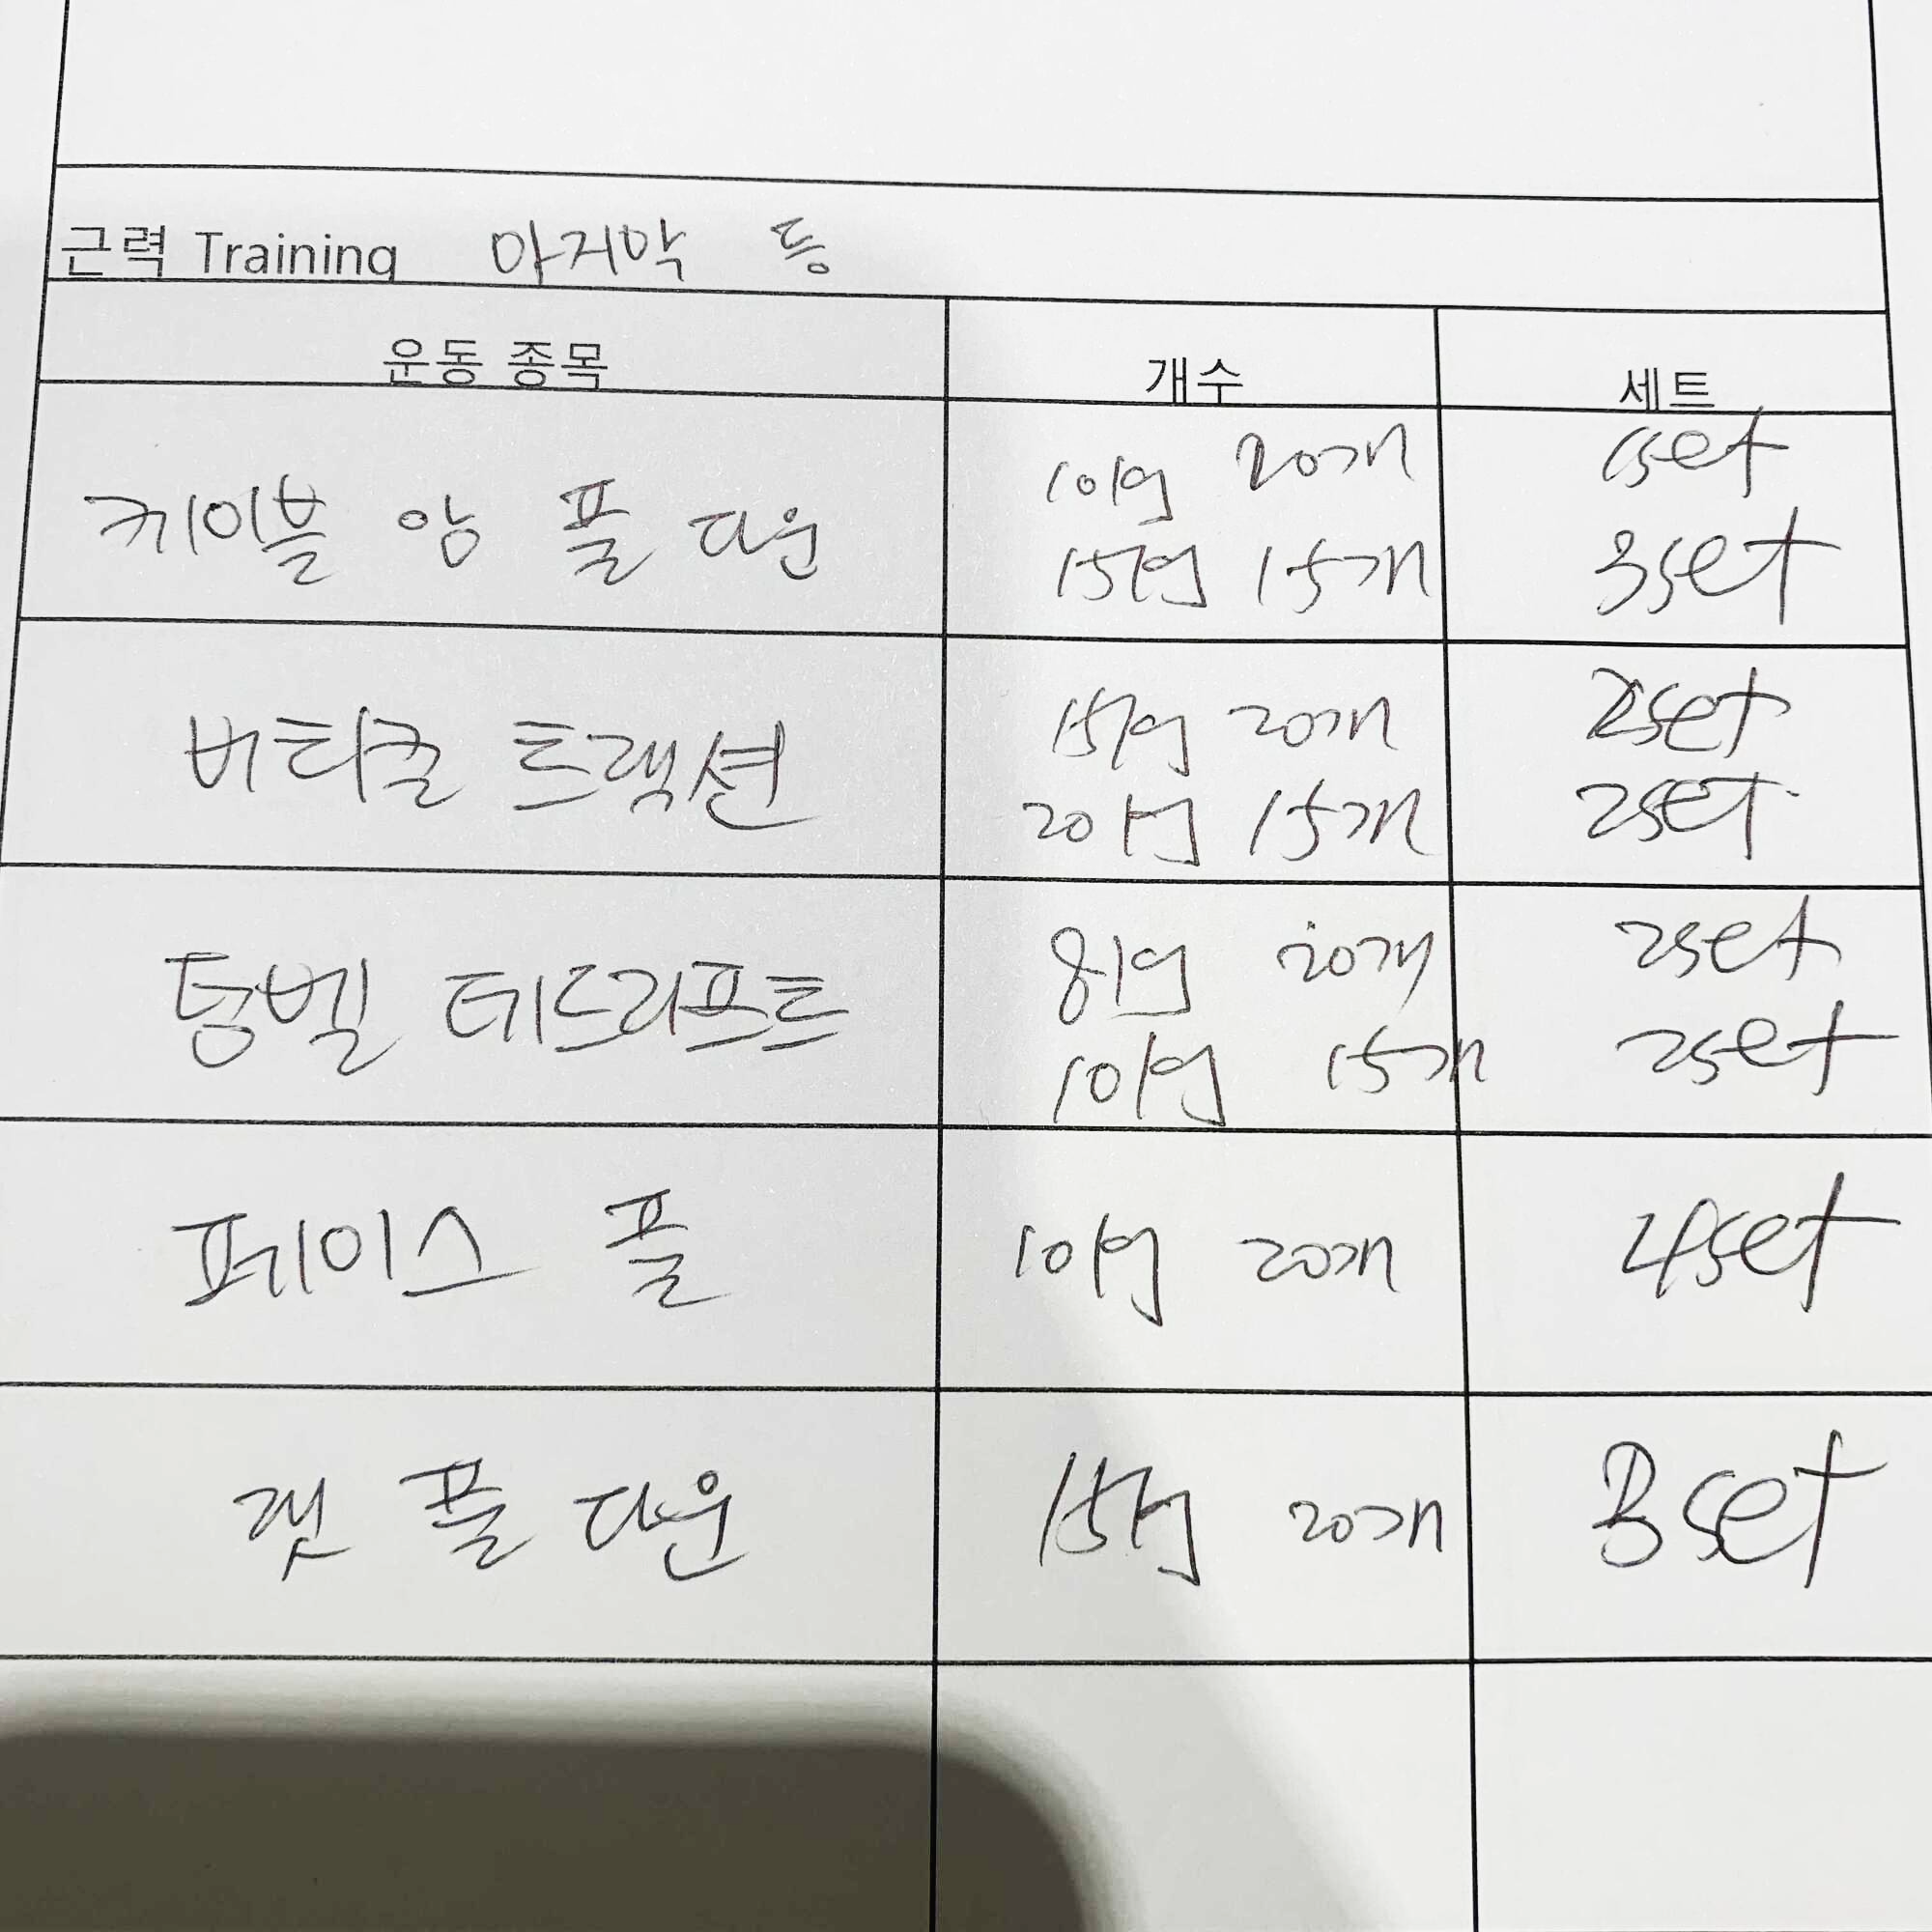 근력 Training 마지막 등
운동 종목 개수 세트
케이블 암 풀 다운
10kg 20개 1set
15kg 15개 3set
버티컬 트랙션
15kg 20개 2set
20kg 15개 2set
덤벨 데드리프트
8kg 20개 2set
10kg 15개 2set
페이스 풀 10kg 20개 4set
랫 풀 다운 15kg 20개 3set